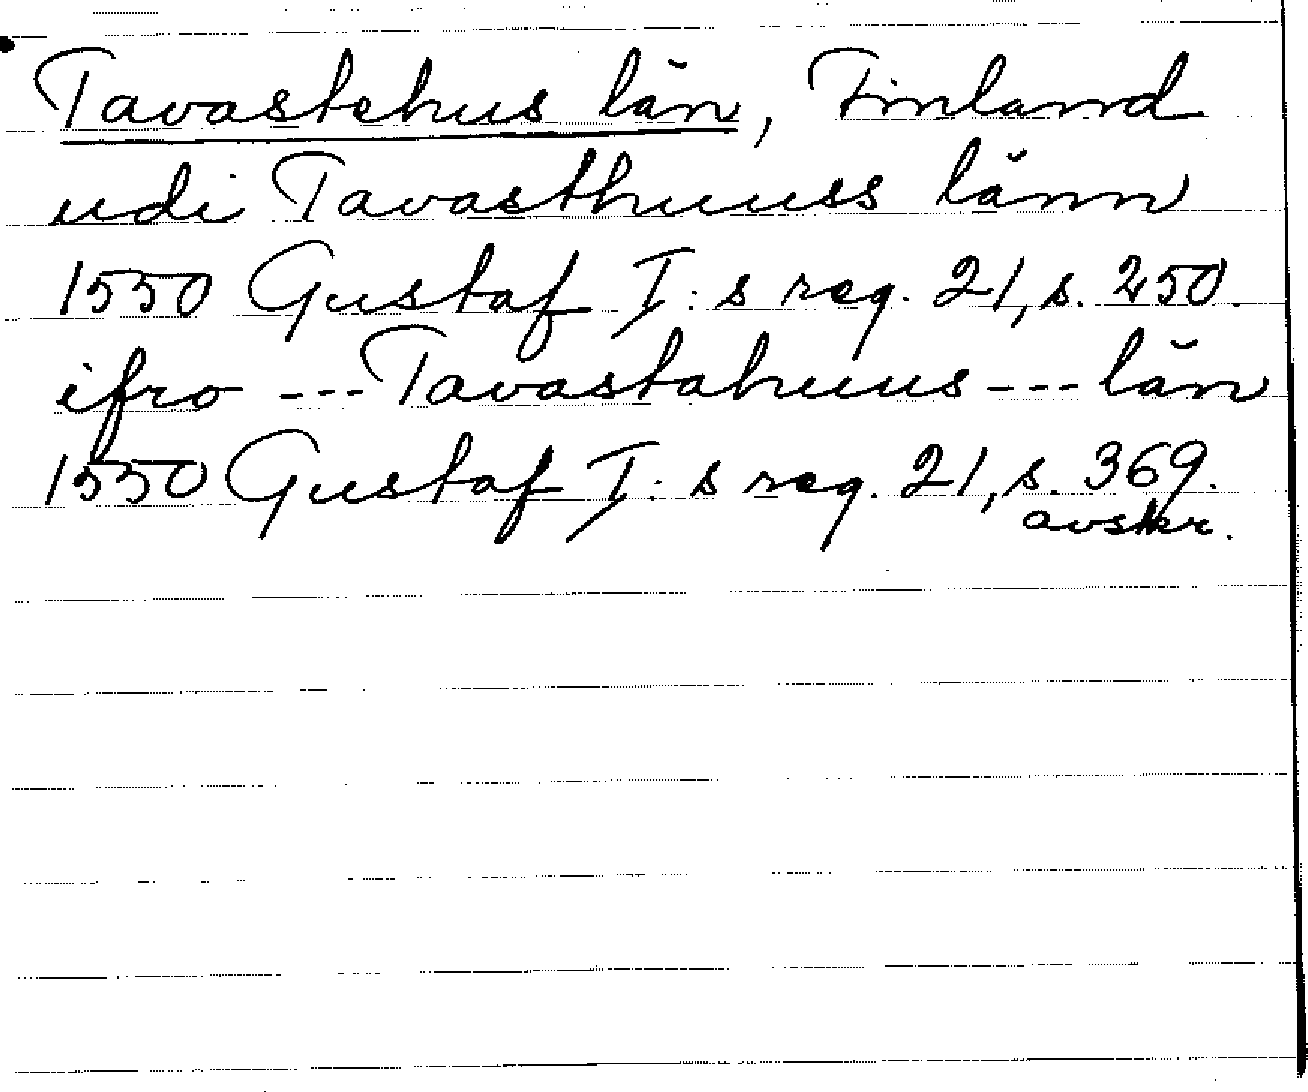 Tavastehus län, Finland
udi Tavasthuuss länn
1550 Gustaf I:s reg. 21, s. 250.
ifro --- Tavastahuus --- län
1550 Gustaf I:s reg. 21, s. 369.
avskr.